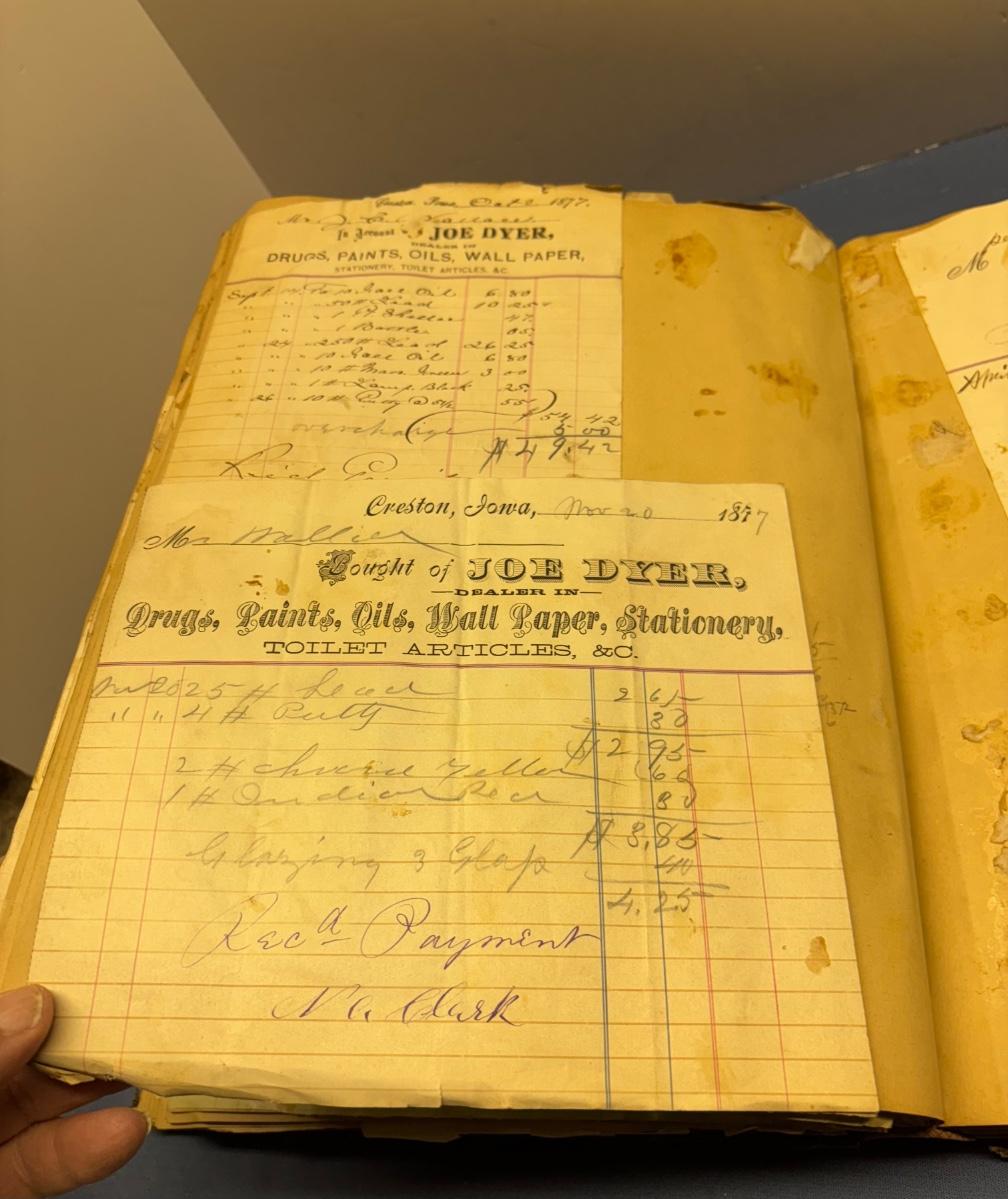 Creston, Iowa, Oct 2 1877.
Mr J.
In Account with JOE DYER,
DEALER IN
DRUGS, PAINTS, OILS, WALL PAPER,
STATIONERY, TOILET ARTICLES, &C.
Sept 10 Oil 6 80
" " " 50 # Lead 10 25
" " " 1 47
" " " 1 05
" 24 " 250 # Lead 26 25
" " " 10 Oil 6 80
" " " 10 # Green 3 00
" " " 1 # Lamp Black 25
" 26 " 10 # Putty @ 5½ 55
$54 42
overcharge 5 00
$49.42
Rec'd
Creston, Iowa, Nov 20 1877
Mr
Bought of JOE DYER,
DEALER IN
Drugs, Paints, Oils, Wall Paper, Stationery,
TOILET ARTICLES, &C.
Nov 20 25 # Lead 2 65
" " 4 # Putty 30
$2 95
2 # chrome Yellow 60
1 # Indian Red 30
$3,85
Glazing 3 Glass 40
4.25
Recd Payment
Clark
April